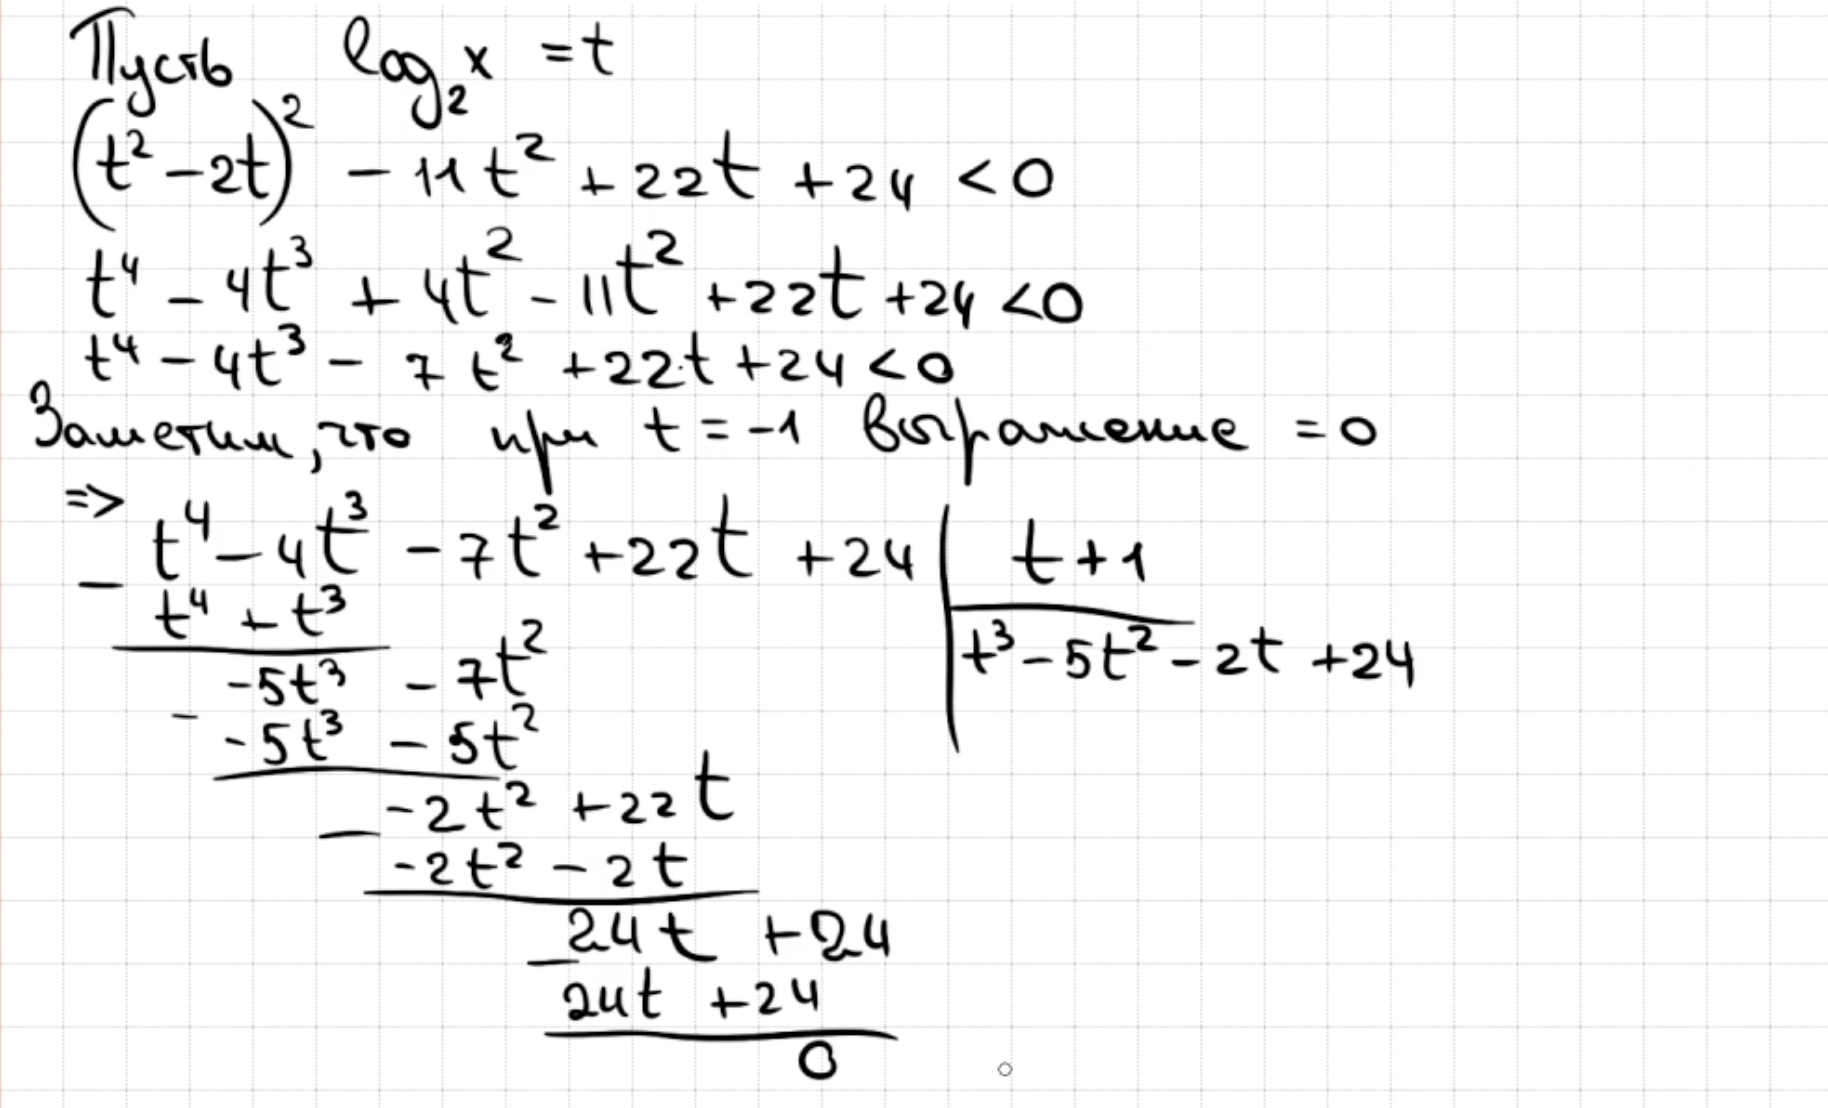 Пусть log₂x = t
(t² - 2t)² - 11t² + 22t + 24 < 0
t⁴ - 4t³ + 4t² - 11t² + 22t + 24 < 0
t⁴ - 4t³ - 7t² + 22t + 24 < 0
Заметим, что при t = -1 выражение = 0
=>
t⁴ - 4t³ - 7t² + 22t + 24 | t + 1
- t⁴ + t³
t³ - 5t² - 2t + 24
-5t³ - 7t²
- -5t³ - 5t²
-2t² + 22t
- -2t² - 2t
24t + 24
- 24t + 24
0